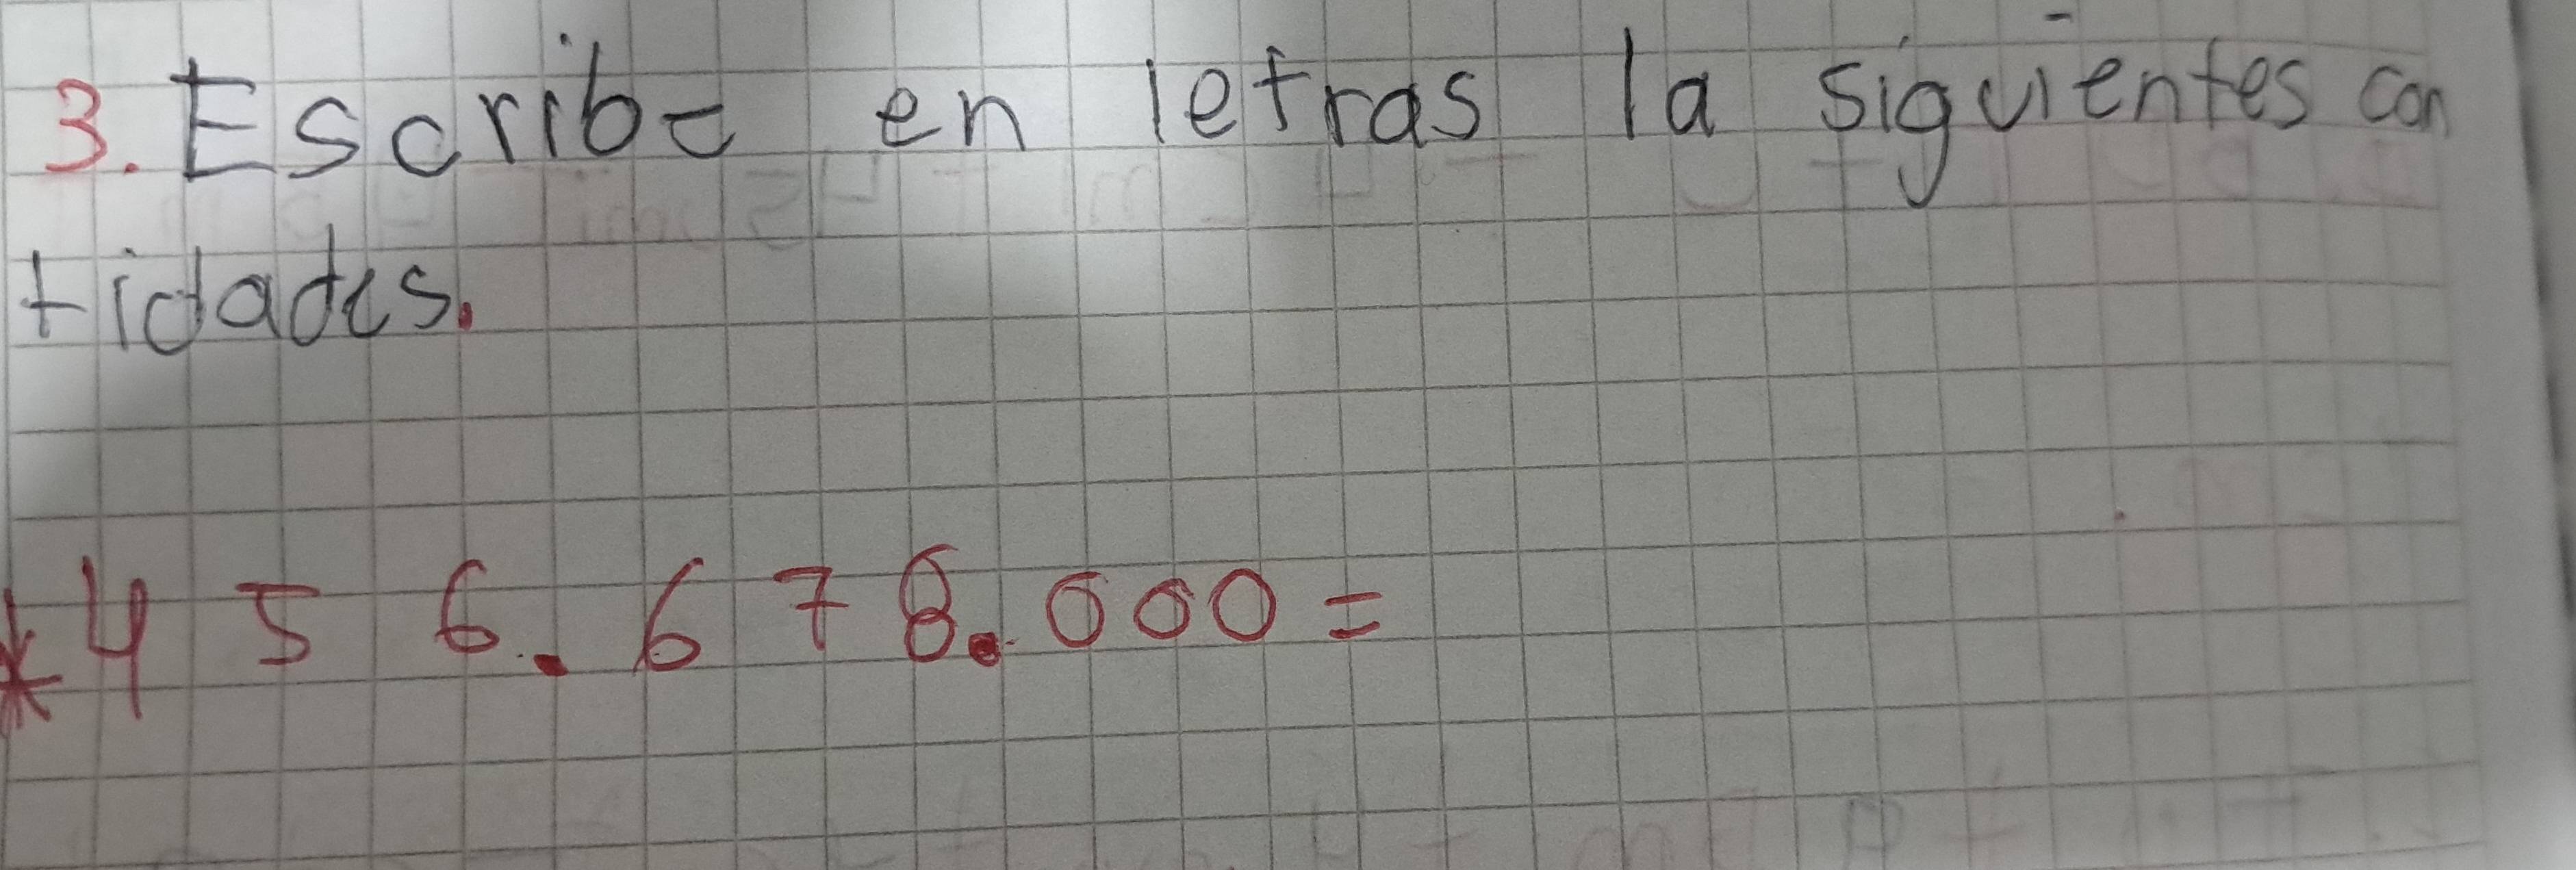 3. Escribe en letras la siguientes can
tidades.
*456.678.000=